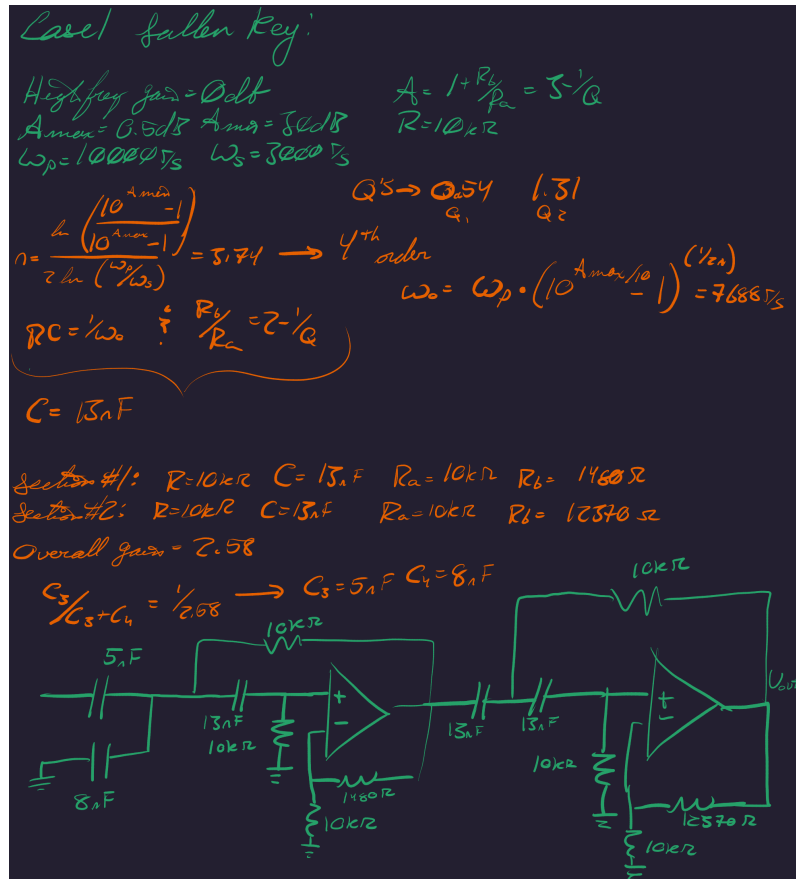 Case 1 Sallen Key:
High freq gain = 0db
A = 1 + Rb/Ra = 3 - 1/Q
Amax = 0.5dB Amin = 30dB
R = 10kΩ
ωp = 10000 r/s ωs = 3000 r/s
Q's → 0.54 1.31
Q1 Q2
n = ln((10^Amin - 1)/(10^Amax - 1)) / 2 ln(ωp/ωs) = 3.74 → 4th order
ω0 = ωp · (10^Amax/10 - 1)^(1/2n) = 7688 r/s
RC = 1/ω0 & Rb/Ra = 2 - 1/Q
C = 13nF
Section #1: R = 10kΩ C = 13nF Ra = 10kΩ Rb = 1480 Ω
Section #2: R = 10kΩ C = 13nF Ra = 10kΩ Rb = 12370 Ω
Overall gain = 2.58
C3/C3+C4 = 1/2.58 → C3 = 5nF C4 = 8nF
10kΩ
10kΩ
5nF
Vout
+
+
13nF
-
13nF
13nF
-
10kΩ
10kΩ
8nF
1480Ω
12370Ω
10kΩ
10kΩ